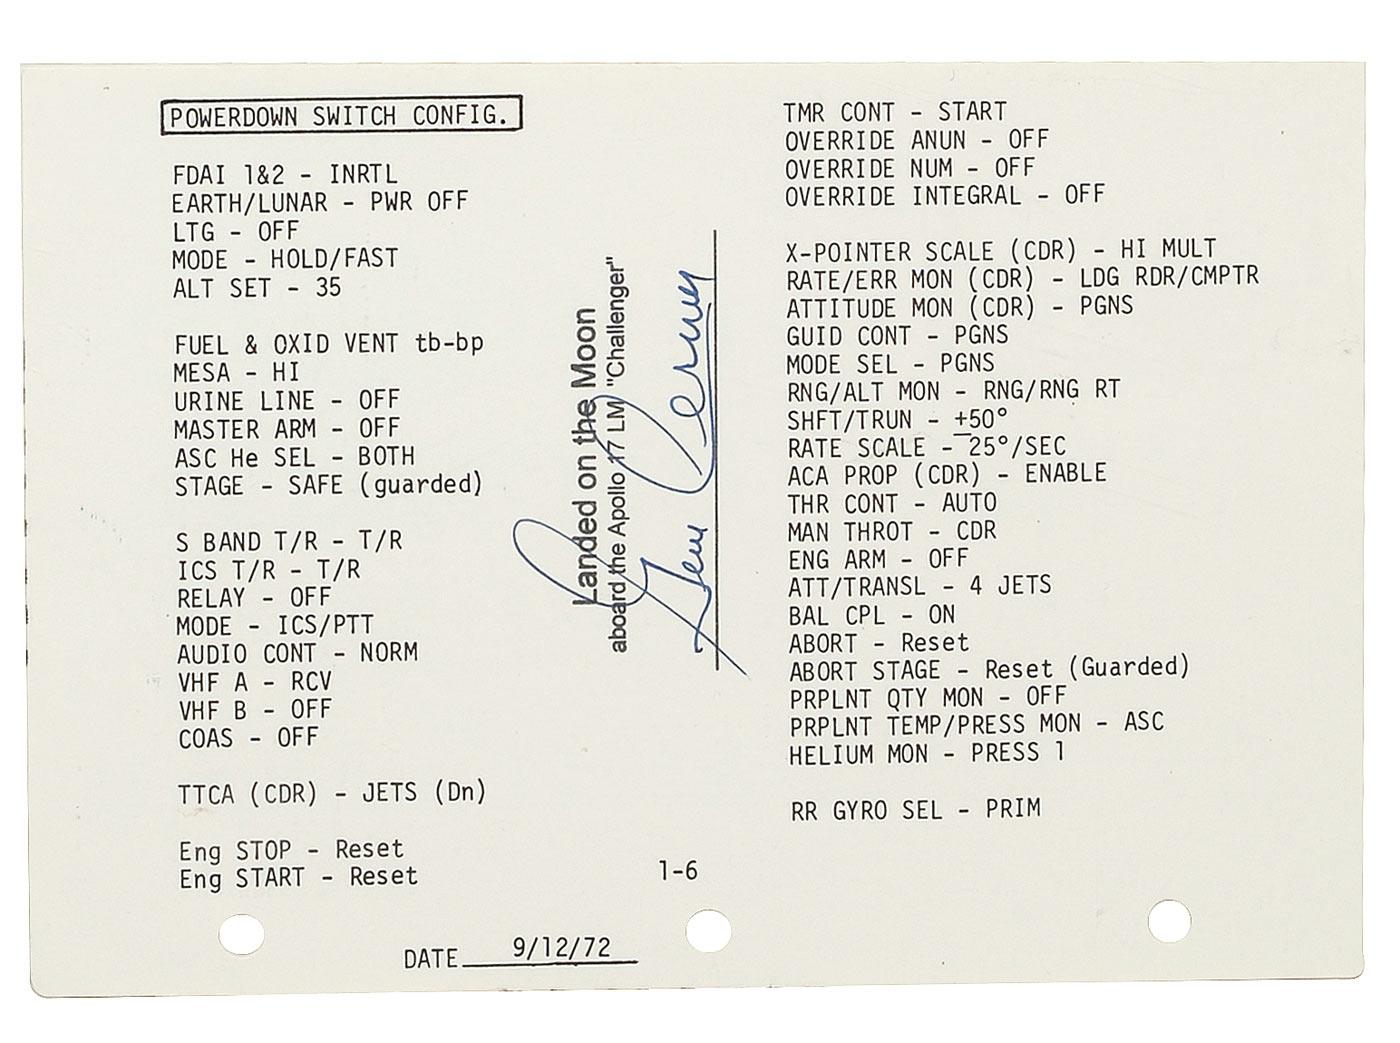 POWERDOWN SWITCH CONFIG.
FDAI 1&2 - INRTL
EARTH/LUNAR - PWR OFF
LTG - OFF
MODE - HOLD/FAST
ALT SET - 35
FUEL & OXID VENT tb-bp
MESA - HI
URINE LINE - OFF
MASTER ARM - OFF
ASC He SEL - BOTH
STAGE - SAFE (guarded)
S BAND T/R - T/R
ICS T/R - T/R
RELAY - OFF
MODE - ICS/PTT
AUDIO CONT - NORM
VHF A - RCV
VHF B - OFF
COAS - OFF
TTCA (CDR) - JETS (Dn)
Eng STOP - Reset
Eng START - Reset
Landed on the Moon
aboard the Apollo 17 LM "Challenger"
Gene Cernan
TMR CONT - START
OVERRIDE ANUN - OFF
OVERRIDE NUM - OFF
OVERRIDE INTEGRAL - OFF
X-POINTER SCALE (CDR) - HI MULT
RATE/ERR MON (CDR) - LDG RDR/CMPTR
ATTITUDE MON (CDR) - PGNS
GUID CONT - PGNS
MODE SEL - PGNS
RNG/ALT MON - RNG/RNG RT
SHFT/TRUN - ±50°
RATE SCALE - 25°/SEC
ACA PROP (CDR) - ENABLE
THR CONT - AUTO
MAN THROT - CDR
ENG ARM - OFF
ATT/TRANSL - 4 JETS
BAL CPL - ON
ABORT - Reset
ABORT STAGE - Reset (Guarded)
PRPLNT QTY MON - OFF
PRPLNT TEMP/PRESS MON - ASC
HELIUM MON - PRESS 1
RR GYRO SEL - PRIM
1-6
DATE 9/12/72